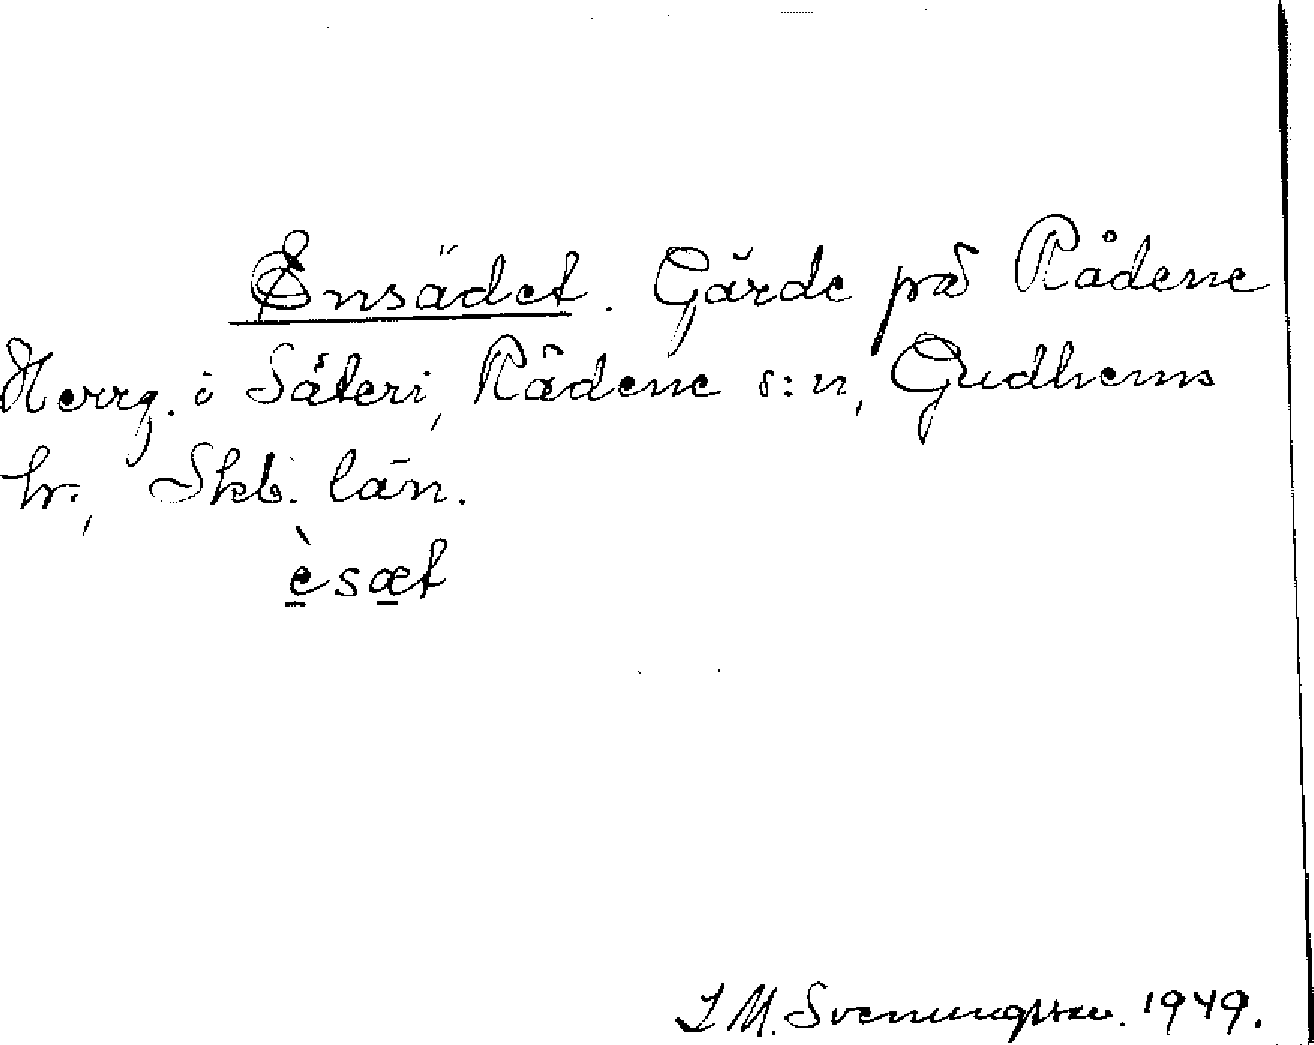 Ensädet. Gärde på Rådene
Herrg. o Säteri, Rådene s:n, Gudhems
hr., Skb. län.
èsæt
J M. Svenungsson. 1949.